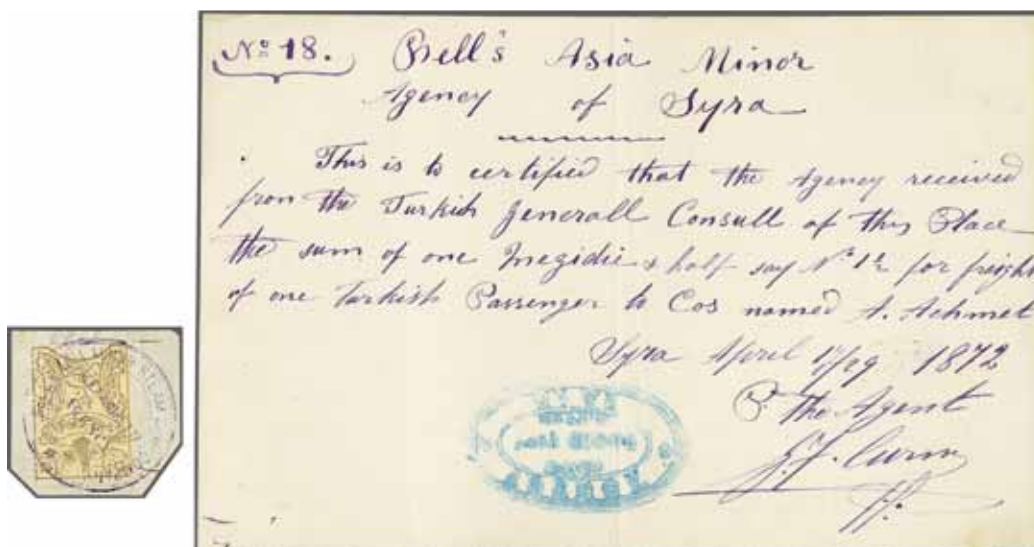 No. 18. Bell's Asia Minor
Agency of Syra
This is to certified that the Agency received
from the Turkish Generall Consull of this Place
the sum of one Megidie & half say No. 1½ for freight
of one Turkish Passenger to Cos named A. Achmet
Syra April 17/29 1872
P. The Agent